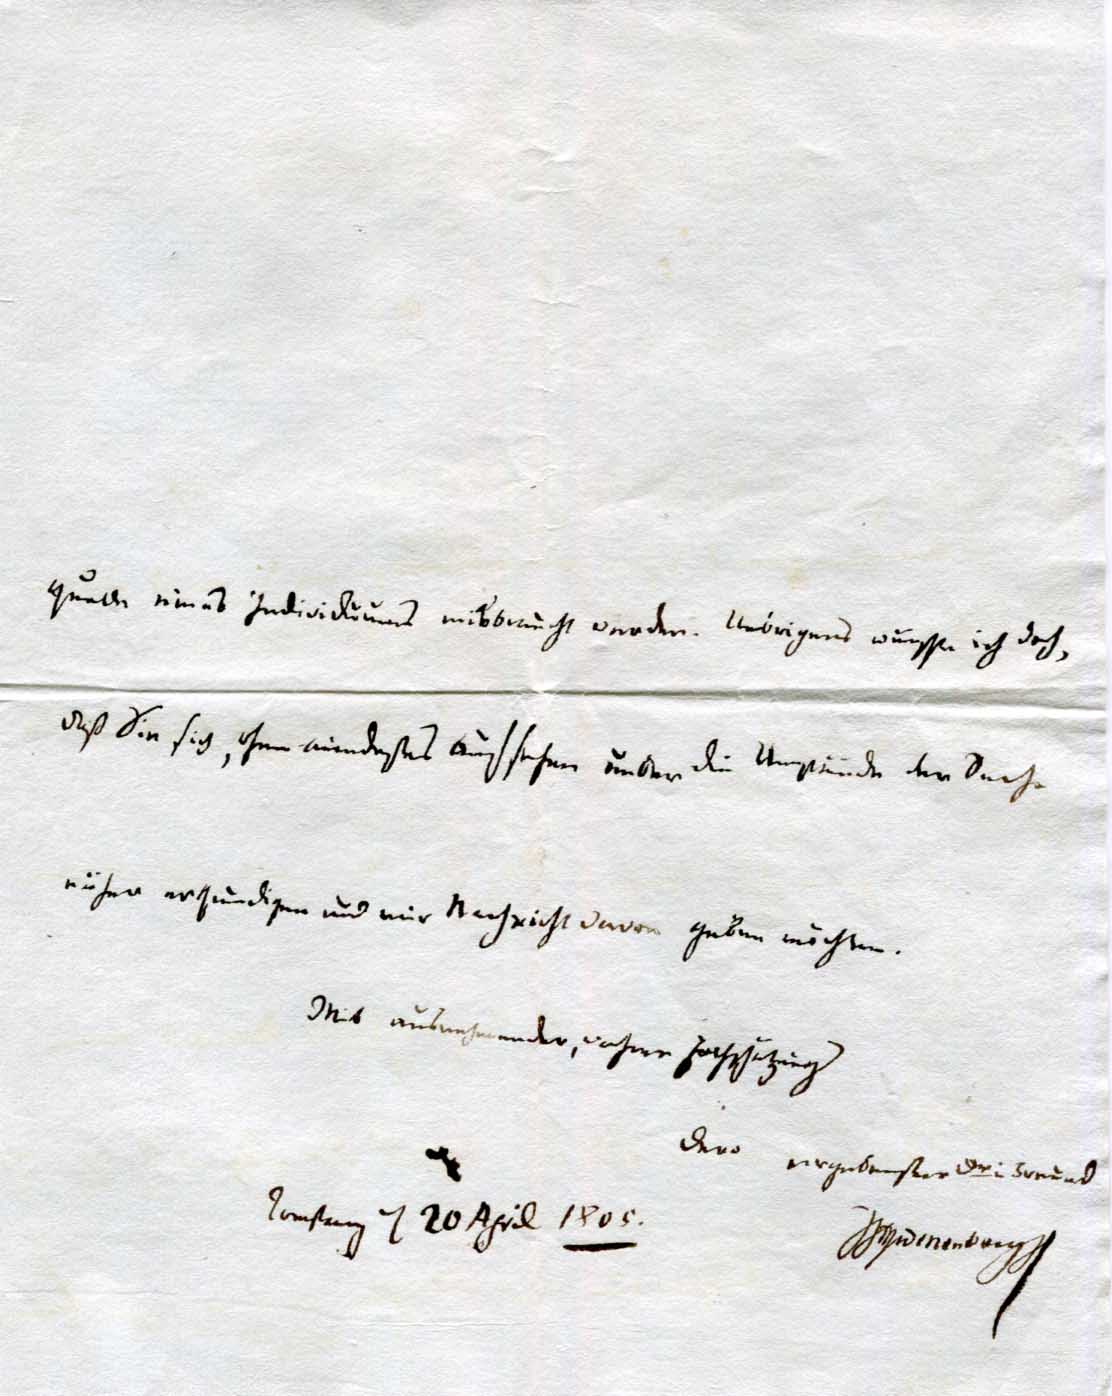 eines Individuums mißbraucht werden. Uebrigens wünschte ich doch,
daß Sie sich, ohne mindestes Aufsehen über die Umstände der Sache
näher erkundigen und mir Nachricht davon geben möchten.
Mit ausnehmender, wahrer Hochschätzung
Dero ergebenster Freund
Constanz 20 April 1805.